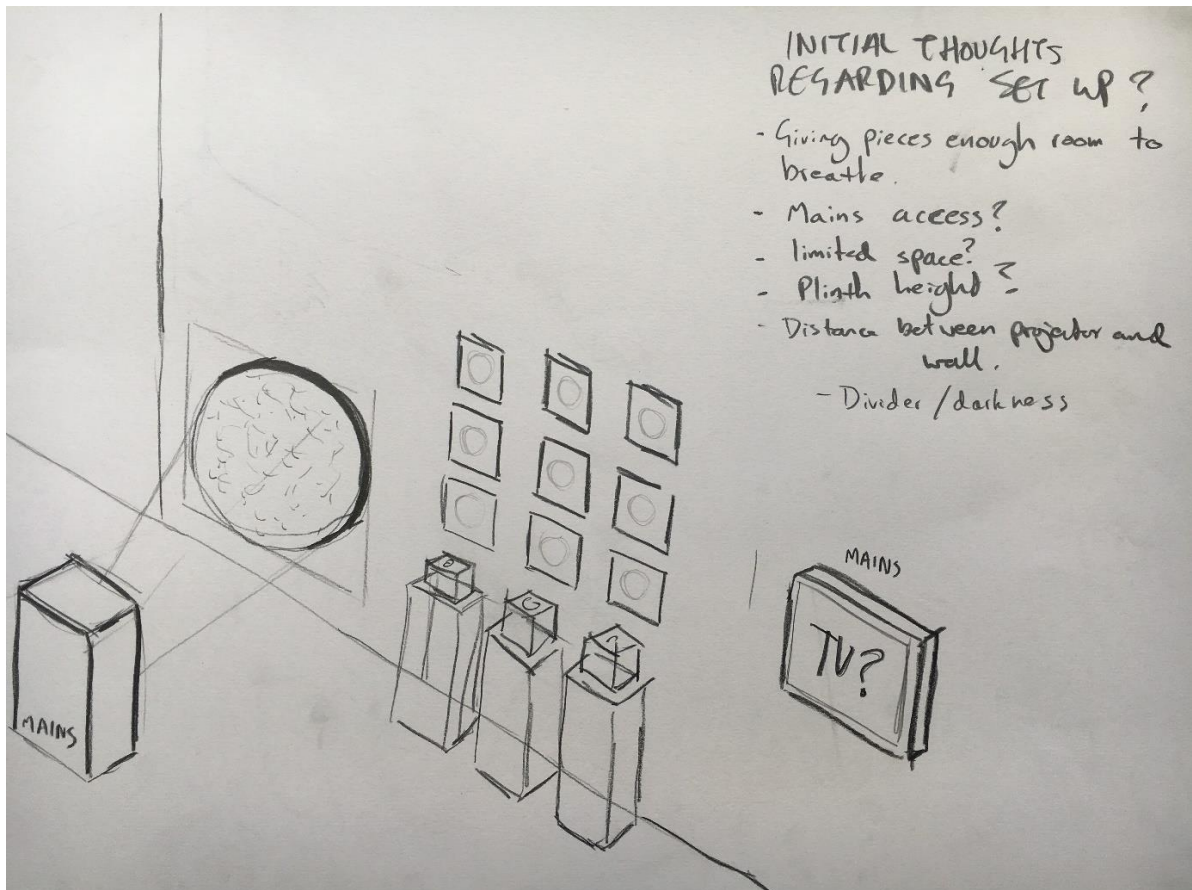 INITIAL THOUGHTS
REGARDING SET UP?
- Giving pieces enough room to
breathe.
- Mains access?
- limited space?
- Plinth height?
- Distance between projector and
wall.
- Divider/darkness
MAINS
TV?
MAINS